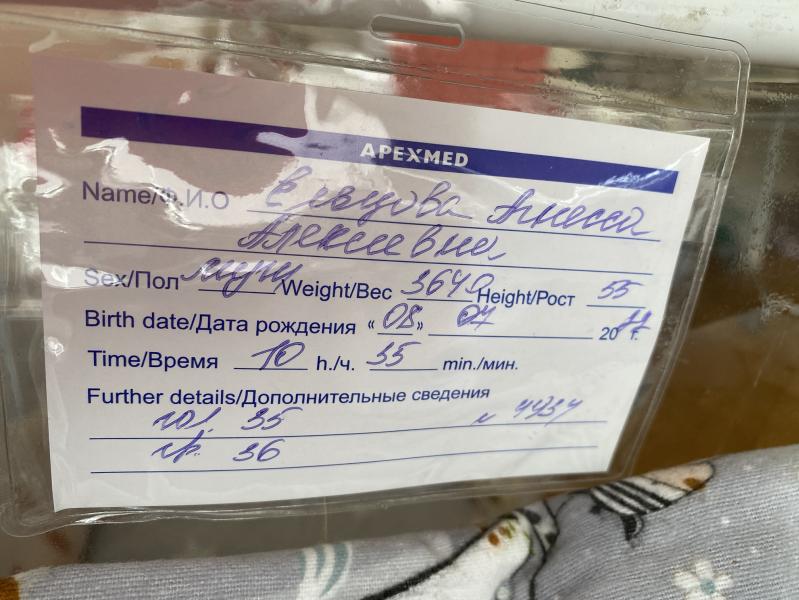 APEXMED
Name/Ф.И.О Ельцова Агнесса
Алексеевна
Sex/Пол Weight/Вес 3640 Height/Рост 55
Birth date/Дата рождения «08» 07 20 г.
Time/Время 10 h./ч. 35 min./мин.
Further details/Дополнительные сведения
гол. 35
гр. 36